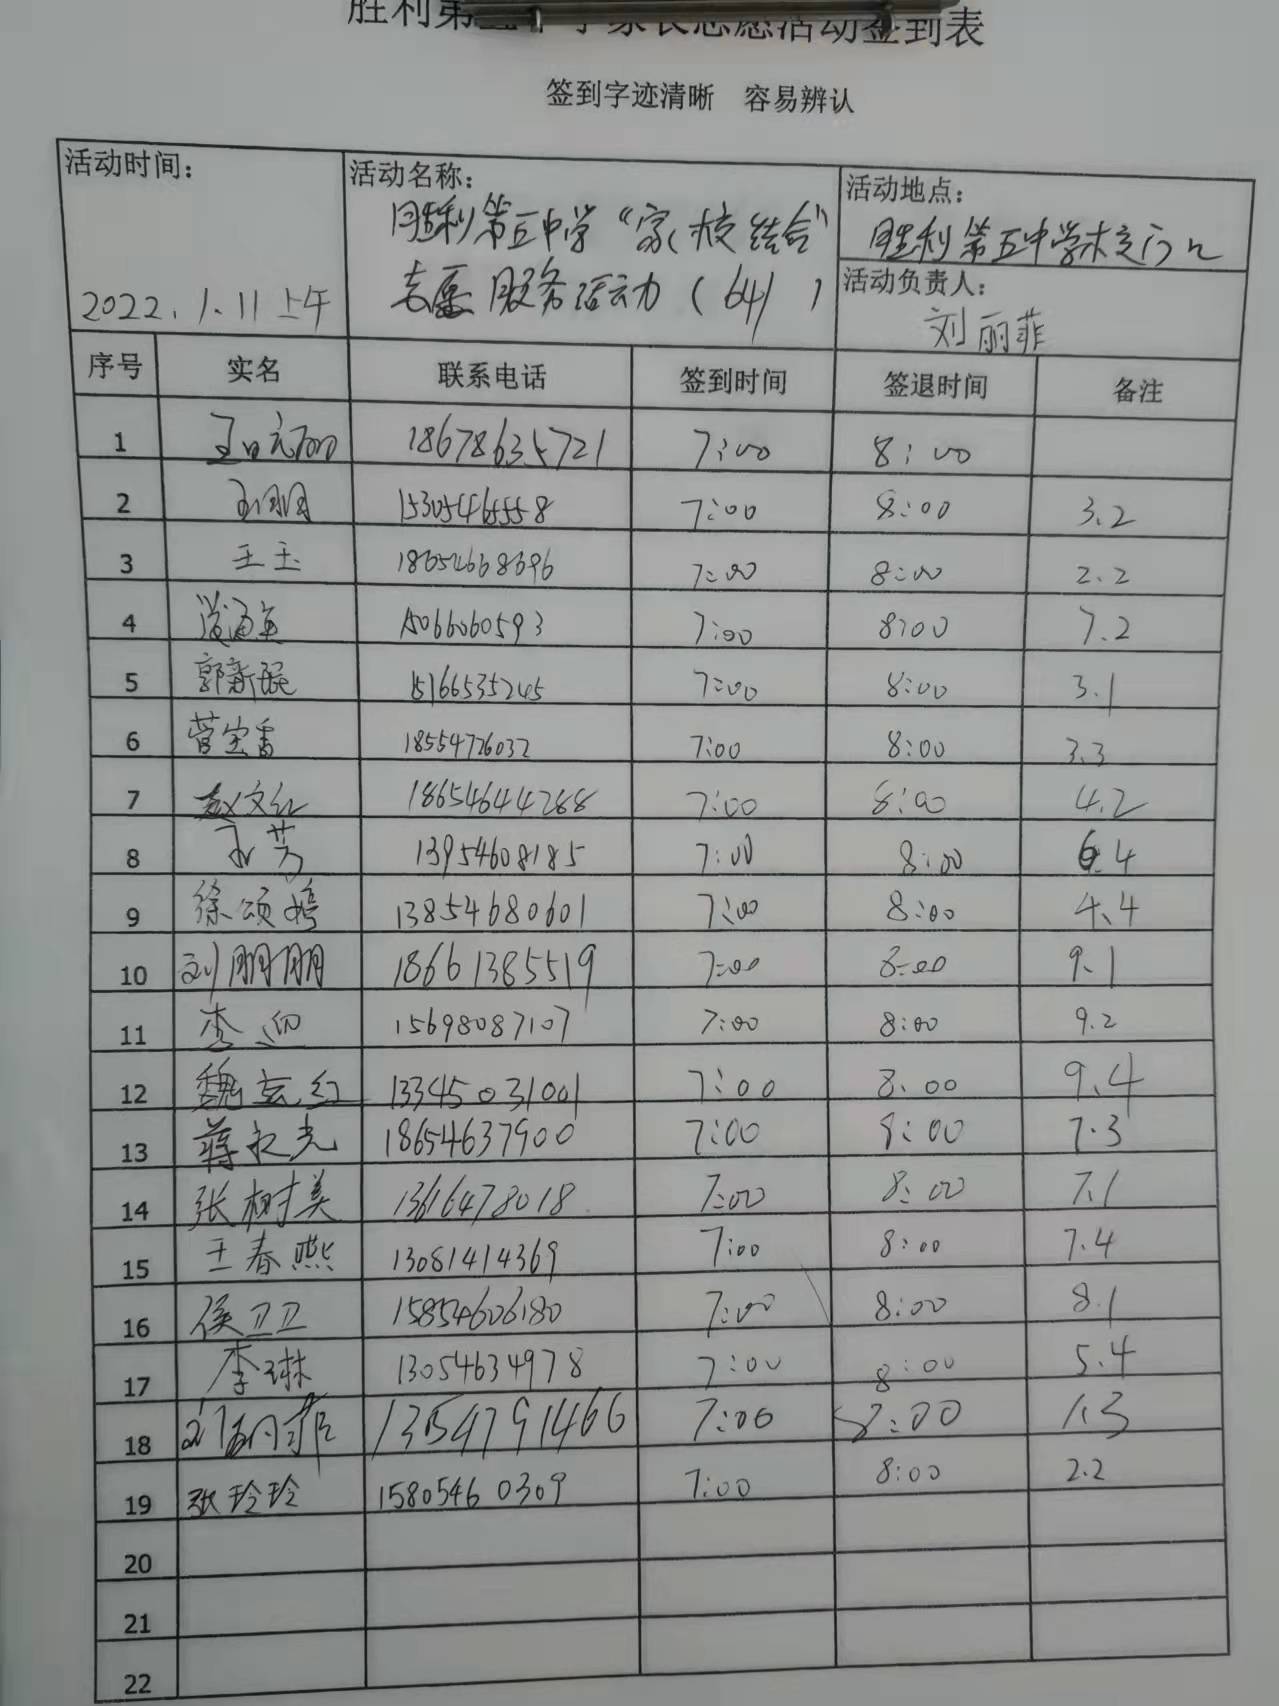 胜利第五中学家长志愿活动签到表
签到字迹清晰 容易辨认
活动时间： 2022.1.11上午
活动名称： 胜利第五中学“家校结合”
志愿服务活动（64）
活动地点：
胜利第五中学校门口
活动负责人：
刘丽菲
序号 实名 联系电话 签到时间 签退时间 备注
1 18678635721 7:00 8:00
2 15305465558 7:00 8:00 3.2
3 王玉 18654668696 7:00 8:00 2.2
4 15066060593 7:00 8:00 7.2
5 郭新 15166535245 7:00 8:00 3.1
6 18554726032 7:00 8:00 3.3
7 赵文红 18654644288 7:00 8:00 4.2
8 13954608185 7:00 8:00 6.4
9 徐颂婷 13854680601 7:00 8:00 4.4
10 刘朋朋 18661385519 7:00 8:00 9.1
11 李迎 15698087107 7:00 8:00 9.2
12 魏玄红 13345031001 7:00 8:00 9.4
13 蒋红光 18654637900 7:00 8:00 7.3
14 张树美 13616478018 7:00 8:00 7.1
15 王春燕 13081414369 7:00 8:00 7.4
16 侯卫卫 15854606180 7:00 8:00 8.1
17 李琳 13054634978 7:00 8:00 5.4
18 刘丽菲 13854791466 7:00 8:00 1.3
19 张玲玲 15805460309 7:00 8:00 2.2
20
21
22